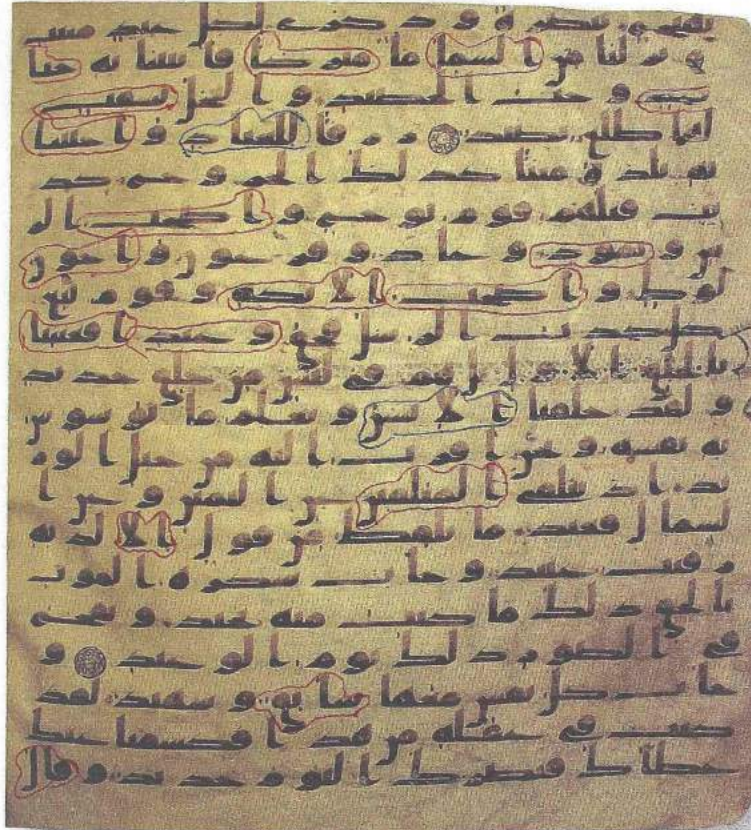 بهيج تبصرة و ذكرى لكل عبد منيب
و نزلنا من السما ما مبركا فانبتنا به جنا
ت و حب الحصيد و النخل بسقت
لها طلع نضيد رزقا للعباد و احيينا
به بلدة ميتا كذلك الخروج كذ
بت قبلهم قوم نوح و اصحب الر
س و ثمود و عاد و فرعون و اخون
لوط و اصحب الايكة و قوم تبع
كل كذب الرسل فحق وعيد افعيينا
بالخلق الاول بل هم في لبس من خلق جديد
و لقد خلقنا الانسن و نعلم ما توسوس
به نفسه و نحن اقرب اليه من حبل الور
يد اذ يتلقى المتلقين عن اليمين و عن ا
لشمال قعيد ما يلفظ من قول الا لديه
رقيب عتيد و جات سكرة الموت
بالحق ذلك ما كنت منه تحيد و نفخ
في الصور ذلك يوم الوعيد و
جات كل نفس معها سائق و شهيد لقد
كنت في غفلة من هذا فكشفنا عنك
غطاك فبصرك اليوم حديد و قال